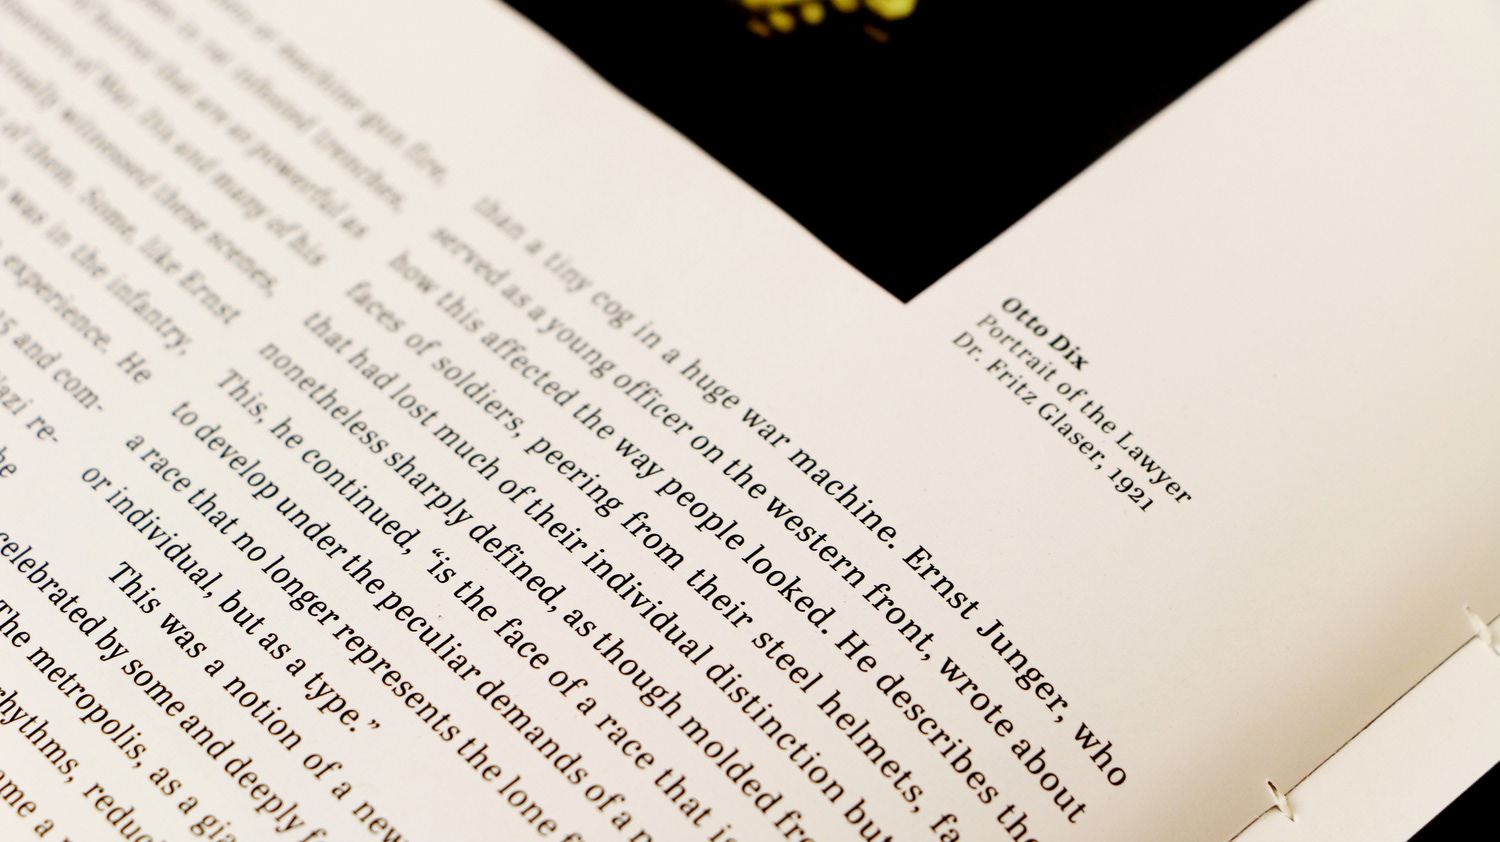 machine-gun fire,
infested trenches,
of horror that are as powerful as
of War. Dix and many of his
witnessed these scenes,
of them. Some, like Ernst
was in the infantry,
experience. He
and com-
re-
than a tiny cog in a huge war machine. Ernst Junger, who
served as a young officer on the western front, wrote about
how this affected the way people looked. He describes the
faces of soldiers, peering from their steel helmets, fa
that had lost much of their individual distinction but
nonetheless sharply defined, as though molded fro
This, he continued, “is the face of a race that is
to develop under the peculiar demands of a
a race that no longer represents the lone f
or individual, but as a type.”
This was a notion of a new
celebrated by some and deeply f
The metropolis, as a gia
rhythms, reduc
ame a
Otto Dix
Portrait of the Lawyer
Dr. Fritz Glaser, 1921